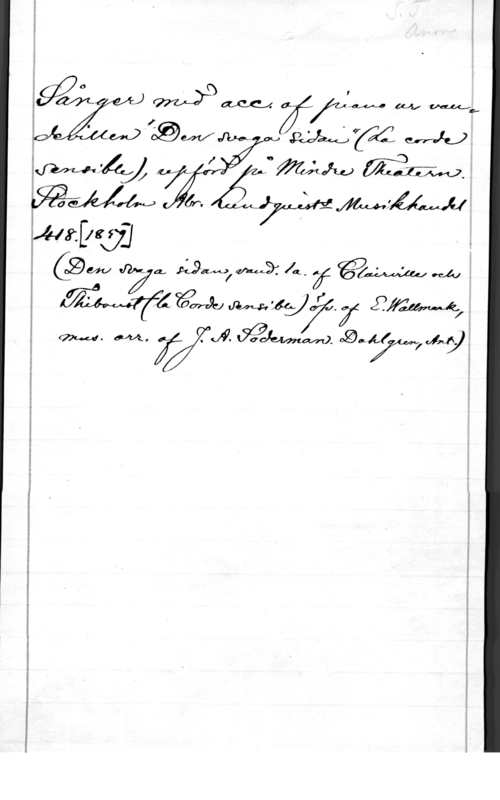 Sånger med acc. af piano ur vau=
devillen "Den svaga sidan" (La corde
sensible), uppförd på Mindre Theatern.
Stockholm Abr. Lundquists Musikhandel
418. [1859]
(Den svaga sidan, vaud. 1a. af Clairville och
Thiboust (la Corde sensible) öfv. af E. Wallmark,
mus. arr. af J. A. Söderman. Dahlgren, Ant.)